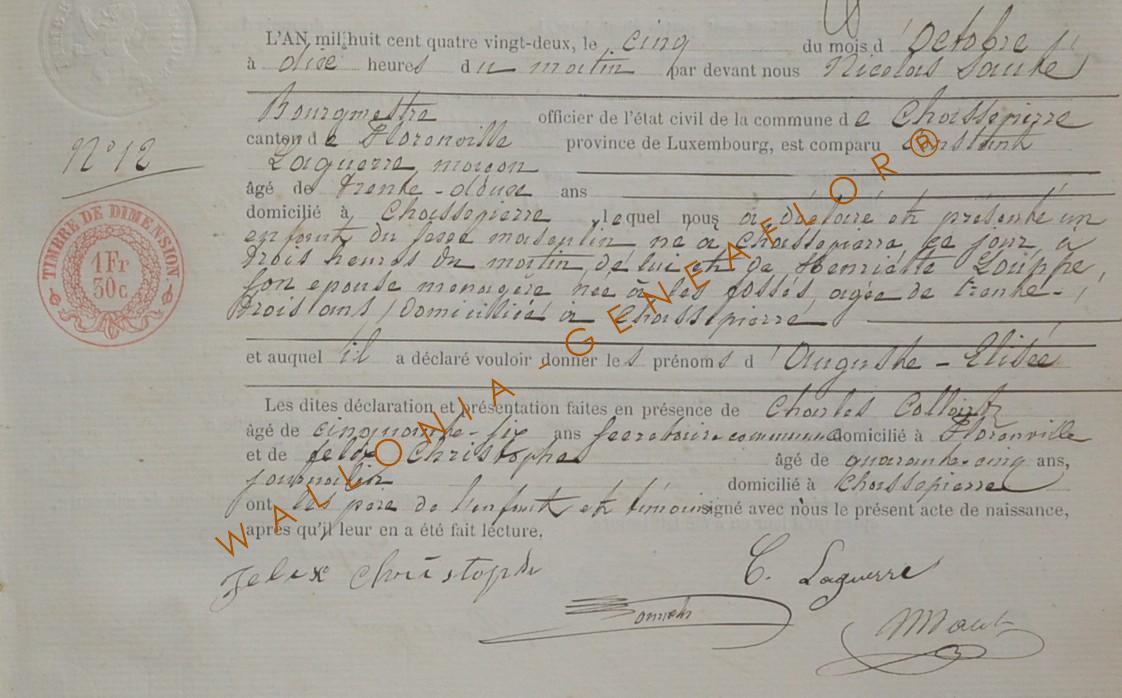 L'AN mil huit cent quatre vingt-deux, le cinq du mois d'Octobre
à dix heures du matin par devant nous Nicolas
Bourgmestre officier de l'état civil de la commune de Chassepierre
canton de Florenville province de Luxembourg, est comparu Constant
N° 12
Laguerre maçon
âgé de trente-douze ans
domicilié à Chassepierre, lequel nous a déclaré et présenté un
enfant du sexe masculin né à Chassepierre, ce jour, à
trois heures du matin, de lui et de Henriette Louppe,
son epouse menagère née à les fossés, agée de trente-
trois ans, domiciliée à Chassepierre
TIMBRE DE DIMENSION
1 Fr
30c
et auquel il a déclaré vouloir donner les prénoms d'Auguste-Elisée
Les dites déclaration et présentation faites en présence de Charles
âgé de cinquante-six ans secretaire communal domicilié à Florenville
et de felix Christophe âgé de quarante-cinq ans,
journalier domicilié à Chassepierre
ont les père de l'enfant et témoins signé avec nous le présent acte de naissance,
après qu'il leur en a été fait lecture.
Felix Christophe C. Laguerre
WALLONIA - GENEAFLOR®